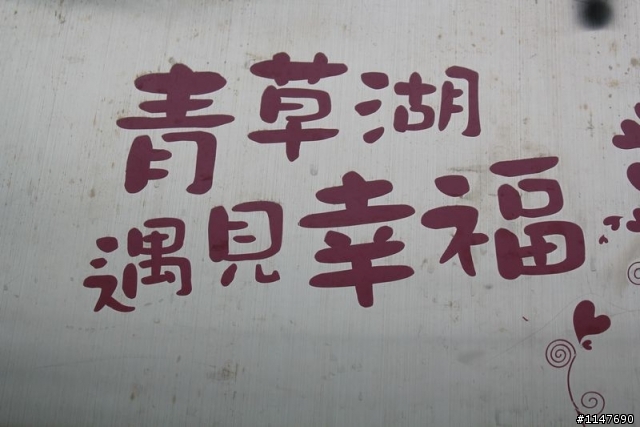 青草湖
遇見幸福
#1147690